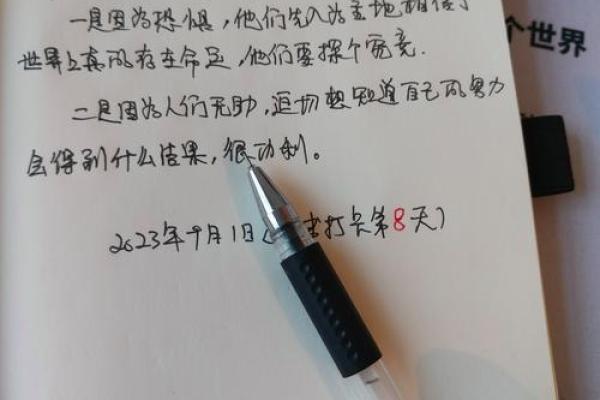 一是因为恐惧，他们先入为主地相信了
世界上真的有生命足，他们要探个究竟.
二是因为人们无助，迫切想知道自己的努力
会得到什么结果，很功利。
2023年9月1日（ 打卡第8天）
个世界